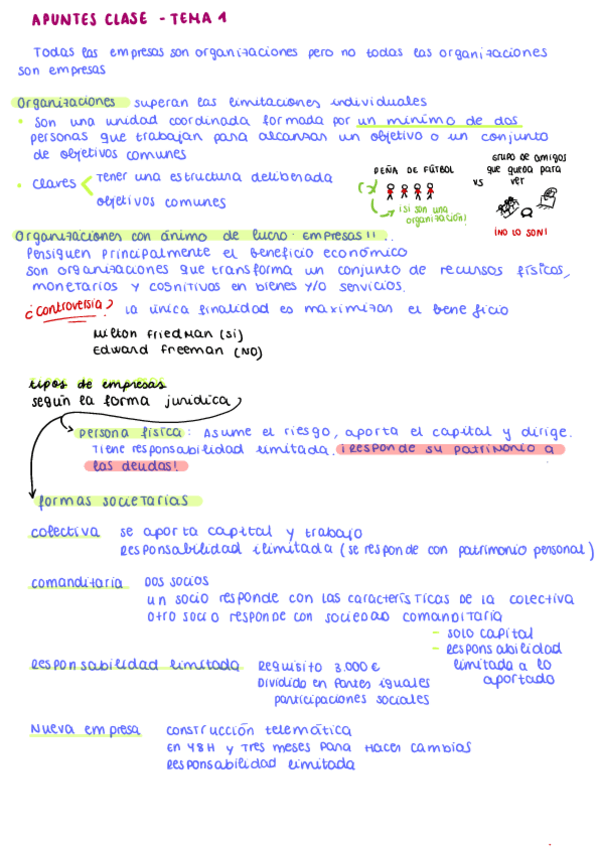 APUNTES CLASE - TEMA 1
Todas las empresas son organizaciones pero no todas las organizaciones
son empresas
Organizaciones superan las limitaciones individuales
• Son una unidad coordinada formada por un mínimo de dos
personas que trabajan para alcanzar un objetivo o un conjunto
de objetivos comunes
• Claves < tener una estructura deliberada
objetivos comunes
PEÑA DE FÚTBOL
¡Si son una
organización!
vs
GRUPO DE AMIGOS
QUE QUEDA PARA
VER
¡NO LO SON!
Organizaciones con ánimo de lucro: EMPRESAS!!..
Persiguen principalmente el beneficio económico
Son organizaciones que transforma un conjunto de recursos físicos,
monetarios y cognitivos en bienes y/o servicios.
¿Controversia? La única finalidad es maximizar el beneficio
Milton Friedman (SI)
Edward Freeman (NO)
tipos de empresas
según la forma jurídica
Persona física: Asume el riesgo, aporta el capital y dirige.
Tiene responsabilidad limitada. ¡Responde su patrimonio a
las deudas!
formas societarias
colectiva se aporta capital y trabajo
Responsabilidad ilimitada (se responde con patrimonio personal)
comanditaria Dos socios
un socio responde con las características de la colectiva
otro socio responde con sociedad comanditaria
- solo capital
- Responsabilidad
limitada a lo
aportado
Responsabilidad limitada Requisito 3.000 €
Dividido en partes iguales
participaciones sociales
Nueva empresa construcción telemática
En 48H y tres meses para hacer cambios
Responsabilidad limitada